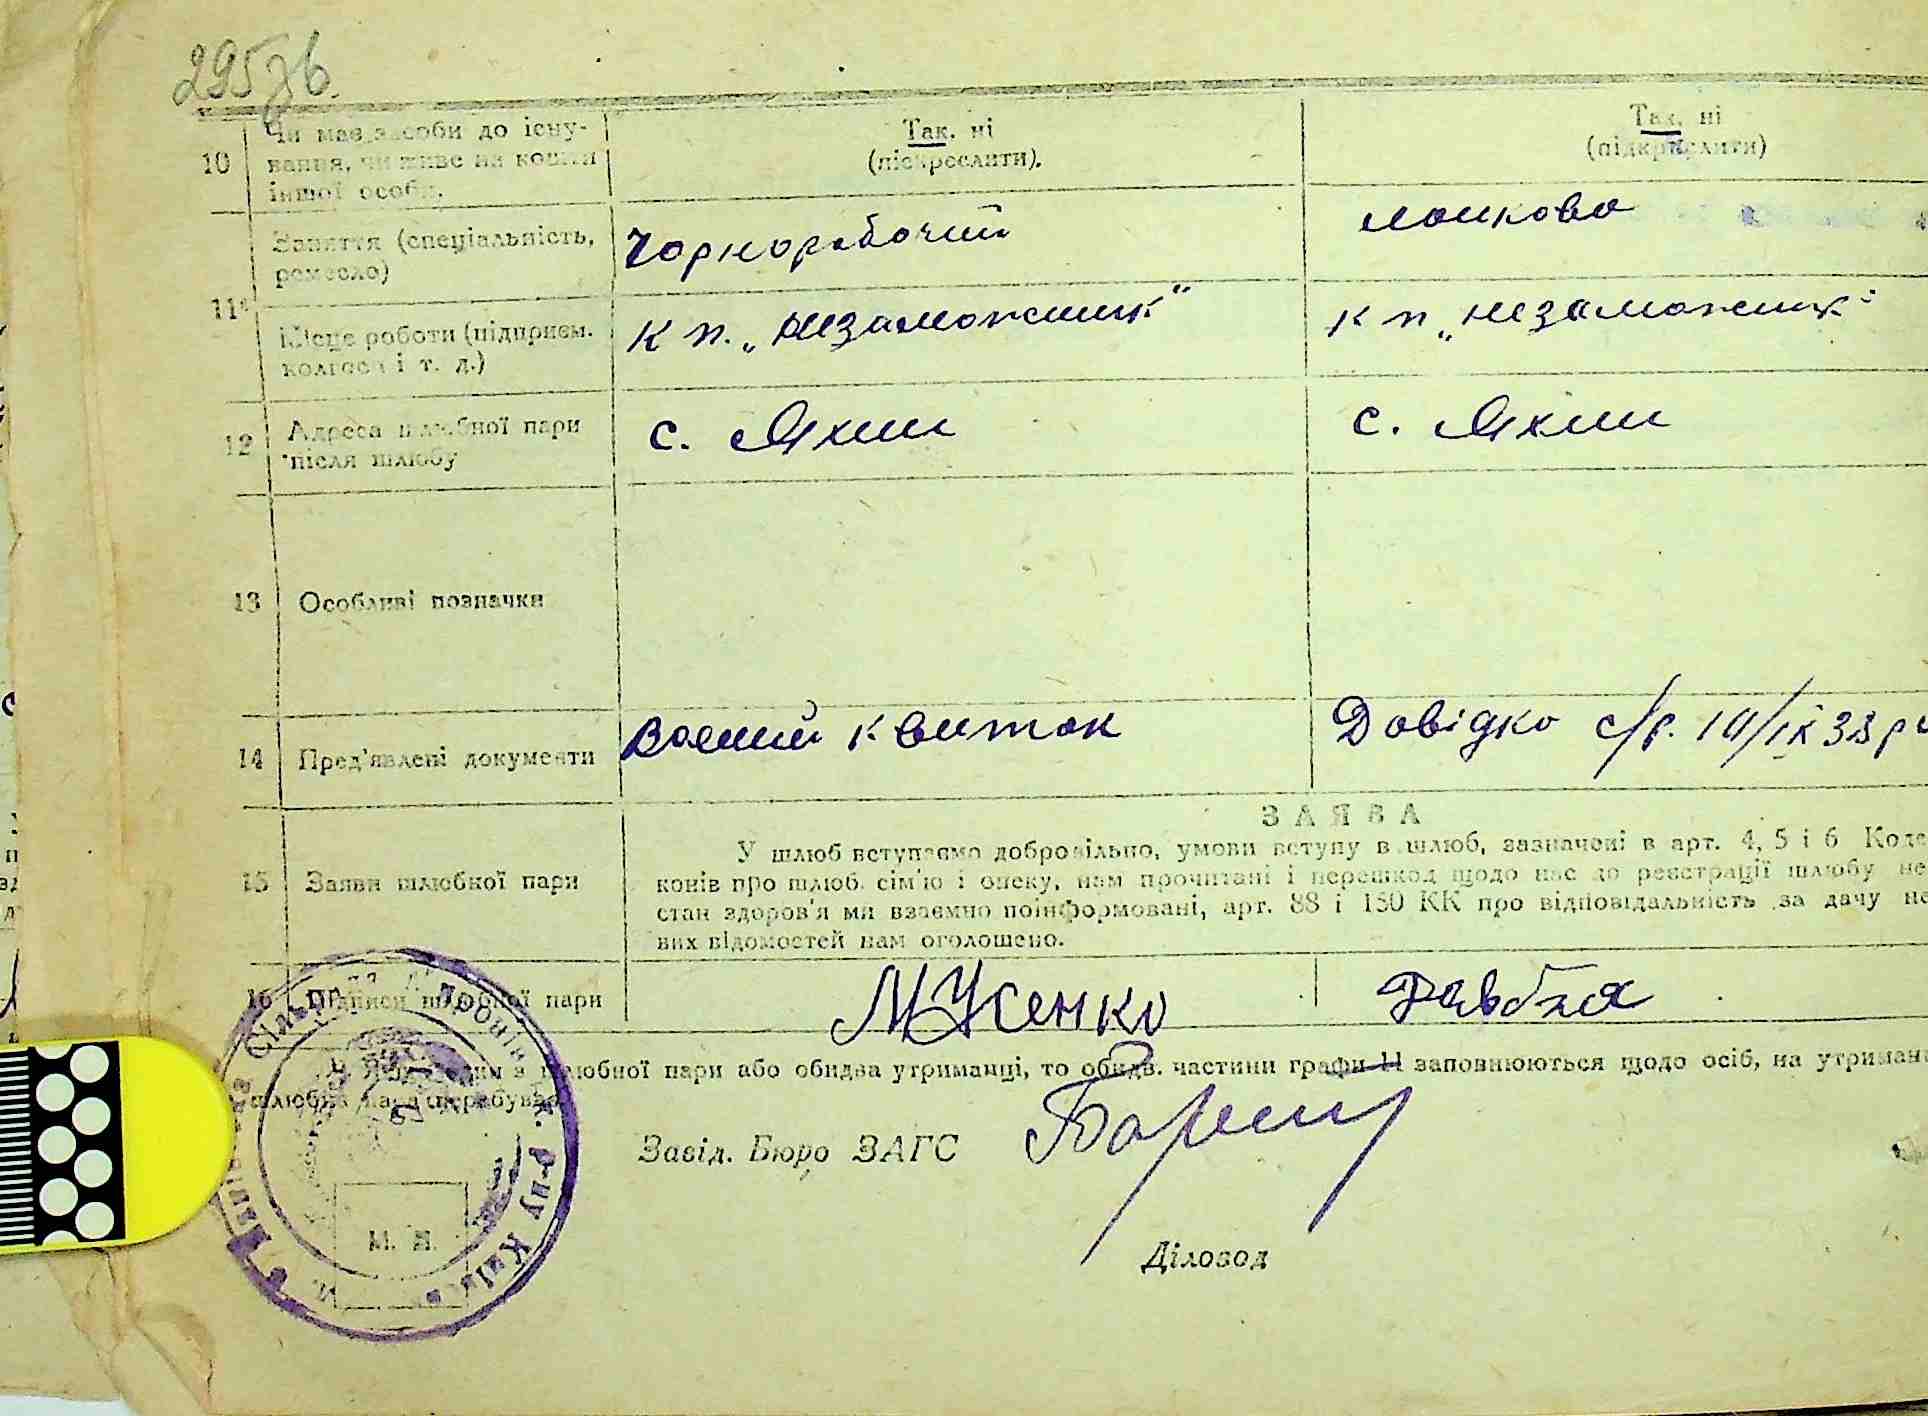 295зв.
10 Чи має засоби до існу-
вання, чи живе на кошти
іншої особи.
Так, ні
(підкреслити).
Так, ні
(підкреслити)
11
Заняття (спеціальність,
ремесло)
Чорноробочий
ланкова
Місце роботи (підприєм.
колгосп і т. д.)
к п. „Незаможник"
к п „Незаможник"
12 Адреса шлюбної пари
після шлюбу
с. Яхни
с. Яхни
13 Особливі позначки
14 Пред'явлені документи
Воений квиток
Довідка с/р.
15 Заяви шлюбної пари
ЗАЯВА
У шлюб вступаємо добровільно, умови вступу в шлюб, зазначені в арт. 4, 5 і 6 Коде
конів про шлюб, сім'ю і опеку, нам прочитані і перешкод щодо нас до реєстрації шлюбу не
стан здоров'я ми взаємно поінформовані, арт. 88 і 150 КК про відповідальність за дачу не
вих відомостей нам оголошено.
16 Підписи шлюбної пари
МУсенко
Довбня
шлюбної пари або обидва утриманці, то обидв. частини графи 11 заповнюються щодо осіб, на утриман
Завід. Бюро ЗАГС
Діловод
М. П.